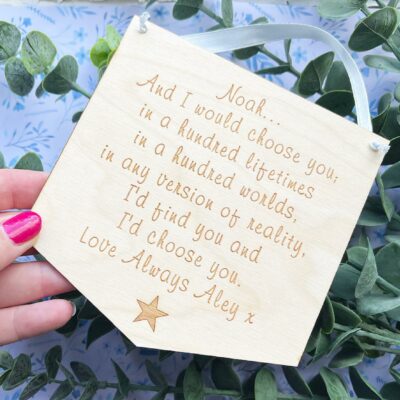 Noah...
And I would choose you;
in a hundred lifetimes
in a hundred worlds,
in any version of reality,
I'd find you and
I'd choose you.
Love Always Aley x